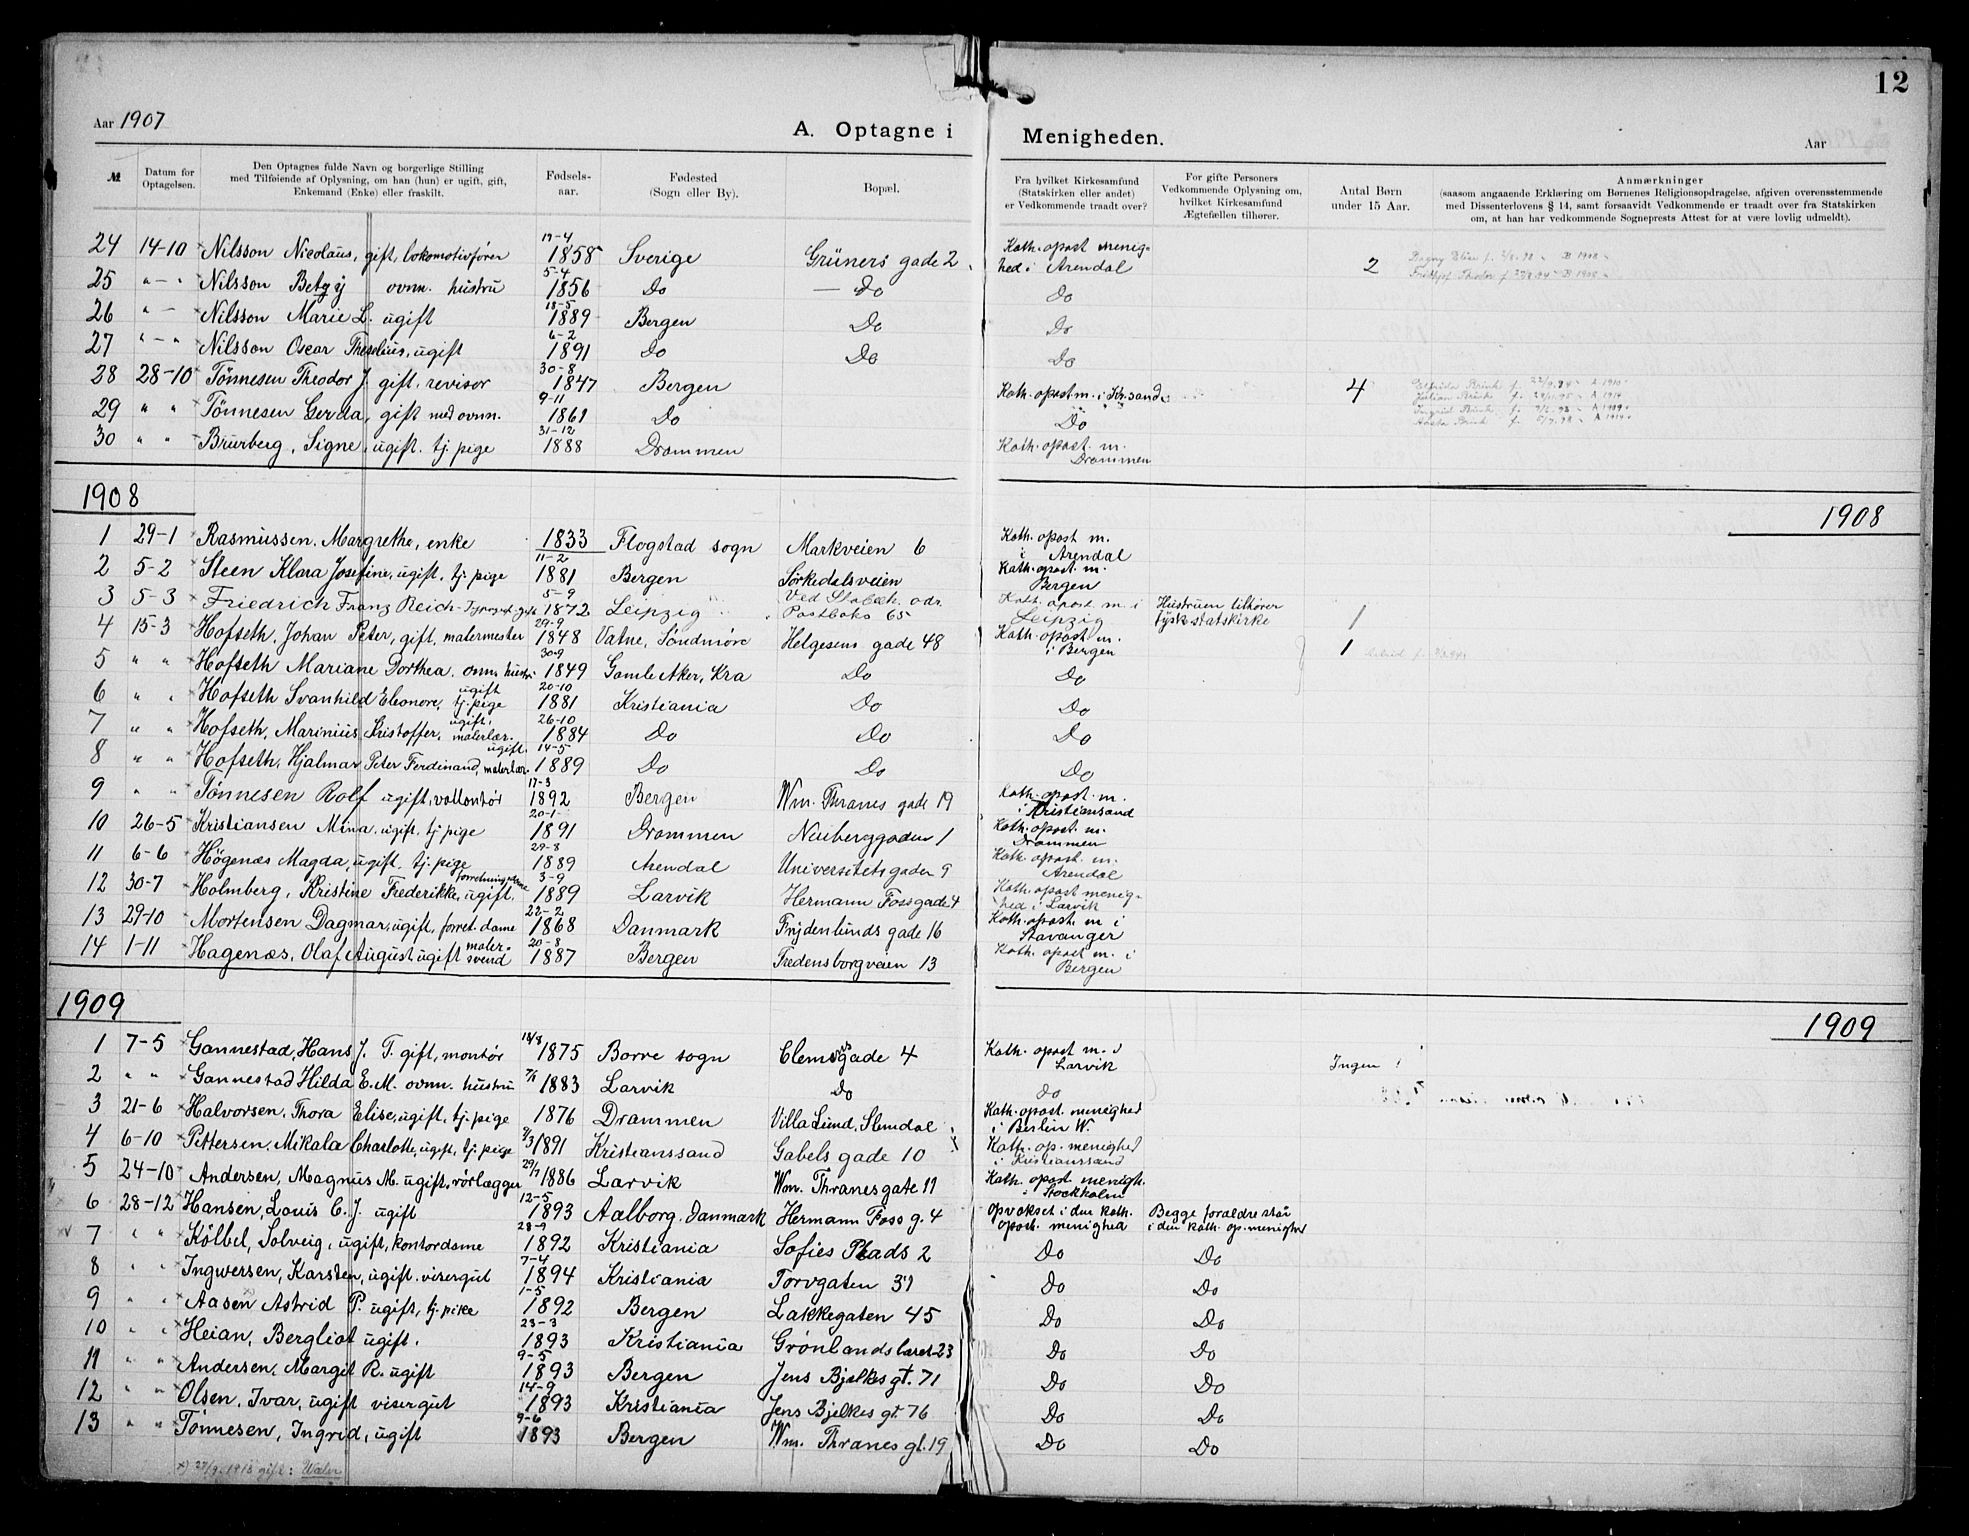 12
Aar 1907
A. Optagne i Menigheden.
Aar
№ Datum for Optagelsen. Den Optagnes fulde Navn og borgerlige Stilling med Tilføiende af Oplysning, om han (hun) er ugift, gift, Enkemand (Enke) eller fraskilt. Fødsels-aar. Fødested (Sogn eller By). Bopæl. Fra hvilket Kirkesamfund (Statskirken eller andet) er Vedkommende traadt over? For gifte Personers Vedkommende Oplysning om, hvilket Kirkesamfund Ægtefællen tilhører. Antal Børn under 15 Aar. Anmærkninger (saasom angaaende Erklæring om Børnenes Religionsopdragelse, afgiven overensstemmende med Dissenterlovens § 14, samt forsaavidt Vedkommende er traadt over fra Statskirken om, at han har vedkommende Sogneprests Attest for at være lovlig udmeldt).
24 14-10 Nilsson Nicolaus, gift, lokomotivfører 17-4 1858 Sverige Grüners gade 2 Kath. apost menig-hed i Arendal 2
25 " - " Nilsson Betzy ovnn. hustru 5-4 1856 Do Do Do
26 " - Nilsson Marie L. ugift 18-5 1889 Bergen Do Do
27 " - " Nilsson Oscar ugift 6-2 1891 Do Do Do
28 28-10 Tönnesen Theodor J. gift, revisor 30-8 1847 Bergen Kath. apost m. i Kr.sand. 4
29 " " Tönnesen Gerda, gift med ovnn. 9-11 1861 Do Do
30 " " Brurberg, Signe, ugift. tj. pige 31-12 1888 Drammen Kath. apost. m. Drammen
1908 1908
1 29-1 Rasmussen, Margrethe, enke 1833 Flogstad sogn Markveien 6 Kath. apost m. i Arendal
2 5-2 Steen Klara Josefine, ugift, tj. pige 11-2 1881 Bergen Sörkedalsveien Kath. apost. m. Bergen
3 5-3 Friedrich Franz Reich 5-9 1872 Leipzig Postboks 65 Kath. apost m. i Leipzig Hustruen tilhører tysk statskirke 1
4 15-3 Hofseth, Johan Peter, gift, malermester 29-9 1848 Vatne, Söndmöre Helgesens gade 48 Kath. apost m. i Bergen 1
5 " " Hofseth Mariane Dorthea, ovnn. hustr. 30-9 1849 Gamle Aker, Kra Do Do
6 " " Hofseth Svanhild Eleonore, ugift tj. pige 20-10 1881 Kristiania Do Do
7 " " Hofseth, Marinius Kristoffer, ugift, malerlær. 26-10 1884 Do Do Do
8 " " Hofseth, Hjalmar Peter Ferdinand, ugift. malerlær. 14-5 1889 Do Do Do
9 " " Tönnesen Rolf ugift, vollontör 17-3 1892 Bergen Wm. Thranes gade 19 Kath. apost. m. i Kristiansand
10 26-5 Kristiansen Mina, ugift, tj pige 20-1 1891 Drammen Neuberggaden 1 Kath. apost. m. Drammen
11 6-6 Högenæs Magda, ugift. tj. pige 29-8 1889 Arendal Universitetsgaden 9 Kath. apost. m. Arendal
12 30-7 Holmberg, Kristine Frederikke, ugift. 3-9 1889 Larvik Hermann Fossgade 4 Kath. apost menig-hed i Larvik
13 29-10 Mortensen Dagmar, ugift, forret. dame 22-2 1868 Danmark Frydenlunds gade 16 Kath. apost. m i Stavanger
14 1-11 Hagenæs, Olaf August ugift maler-svend 20-8 1887 Bergen Fredensborgveien 13 Kath. apost m. i Bergen
1909 1909
1 7-5 Gannestad, Hans J. T. gift, montör 18/8 1875 Borre sogn Clemensgade 4 Kath. apost m. i Larvik Ingen
2 " " Gannestad Hilda E. M. ovnn. hustru 1883 Larvik Do Do
3 21-6 Halvorsen, Thora Elise, ugift, tj. pige 1876 Drammen Villa Lund, Slemdal Kath. apost. menighed i Berlin W.
4 6-10 Pettersen, Mikala Charlotte, ugift, tj. pige 1891 Kristianssand Gabels gade 10 Kath. op. menighed i Kristianssand
5 24-10 Andersen, Magnus M. ugift, rörlægger 29/7 1886 Larvik Wm. Thranesgate 11 Kath. apost menigh. i Stockholm
6 28-12 Hansen, Louis C. J. ugift 12-5 1893 Aalborg, Danmark Hermann Foss g. 4 opvokset i den kath. apost. menighed Begge foraldre staa i den kath. ap. menighed
7 " " Kölbel, Solveig, ugift, kontordame 28-9 1892 Kristiania Sofies Plads 2 Do Do
8 " " Ingwersen, Karsten, ugift. visergut 7-4 1894 Kristiania Torvgaten 37 Do Do
9 " " Aasen Astrid P. ugift, tj. pike 1-5 1892 Bergen Lakkegaten 45 Do Do
10 " " Heian, Bergliot ugift. 23-3 1893 Kristiania Grønlandsleret 23 Do Do
11 " " Andersen, Margit R. ugift 9-5 1893 Bergen Jens Bjelkes gt. 71 Do Do
12 " " Olsen, Ivar, ugift visergut 14-9 1893 Kristiania Jens Bjelkes gt. 76 Do Do
13 " " Tönnesen, Ingrid, ugift 9-6 1893 Bergen Wm. Thranes gt. 19 Do Do
x) 27/9. 1918 gift: Waler